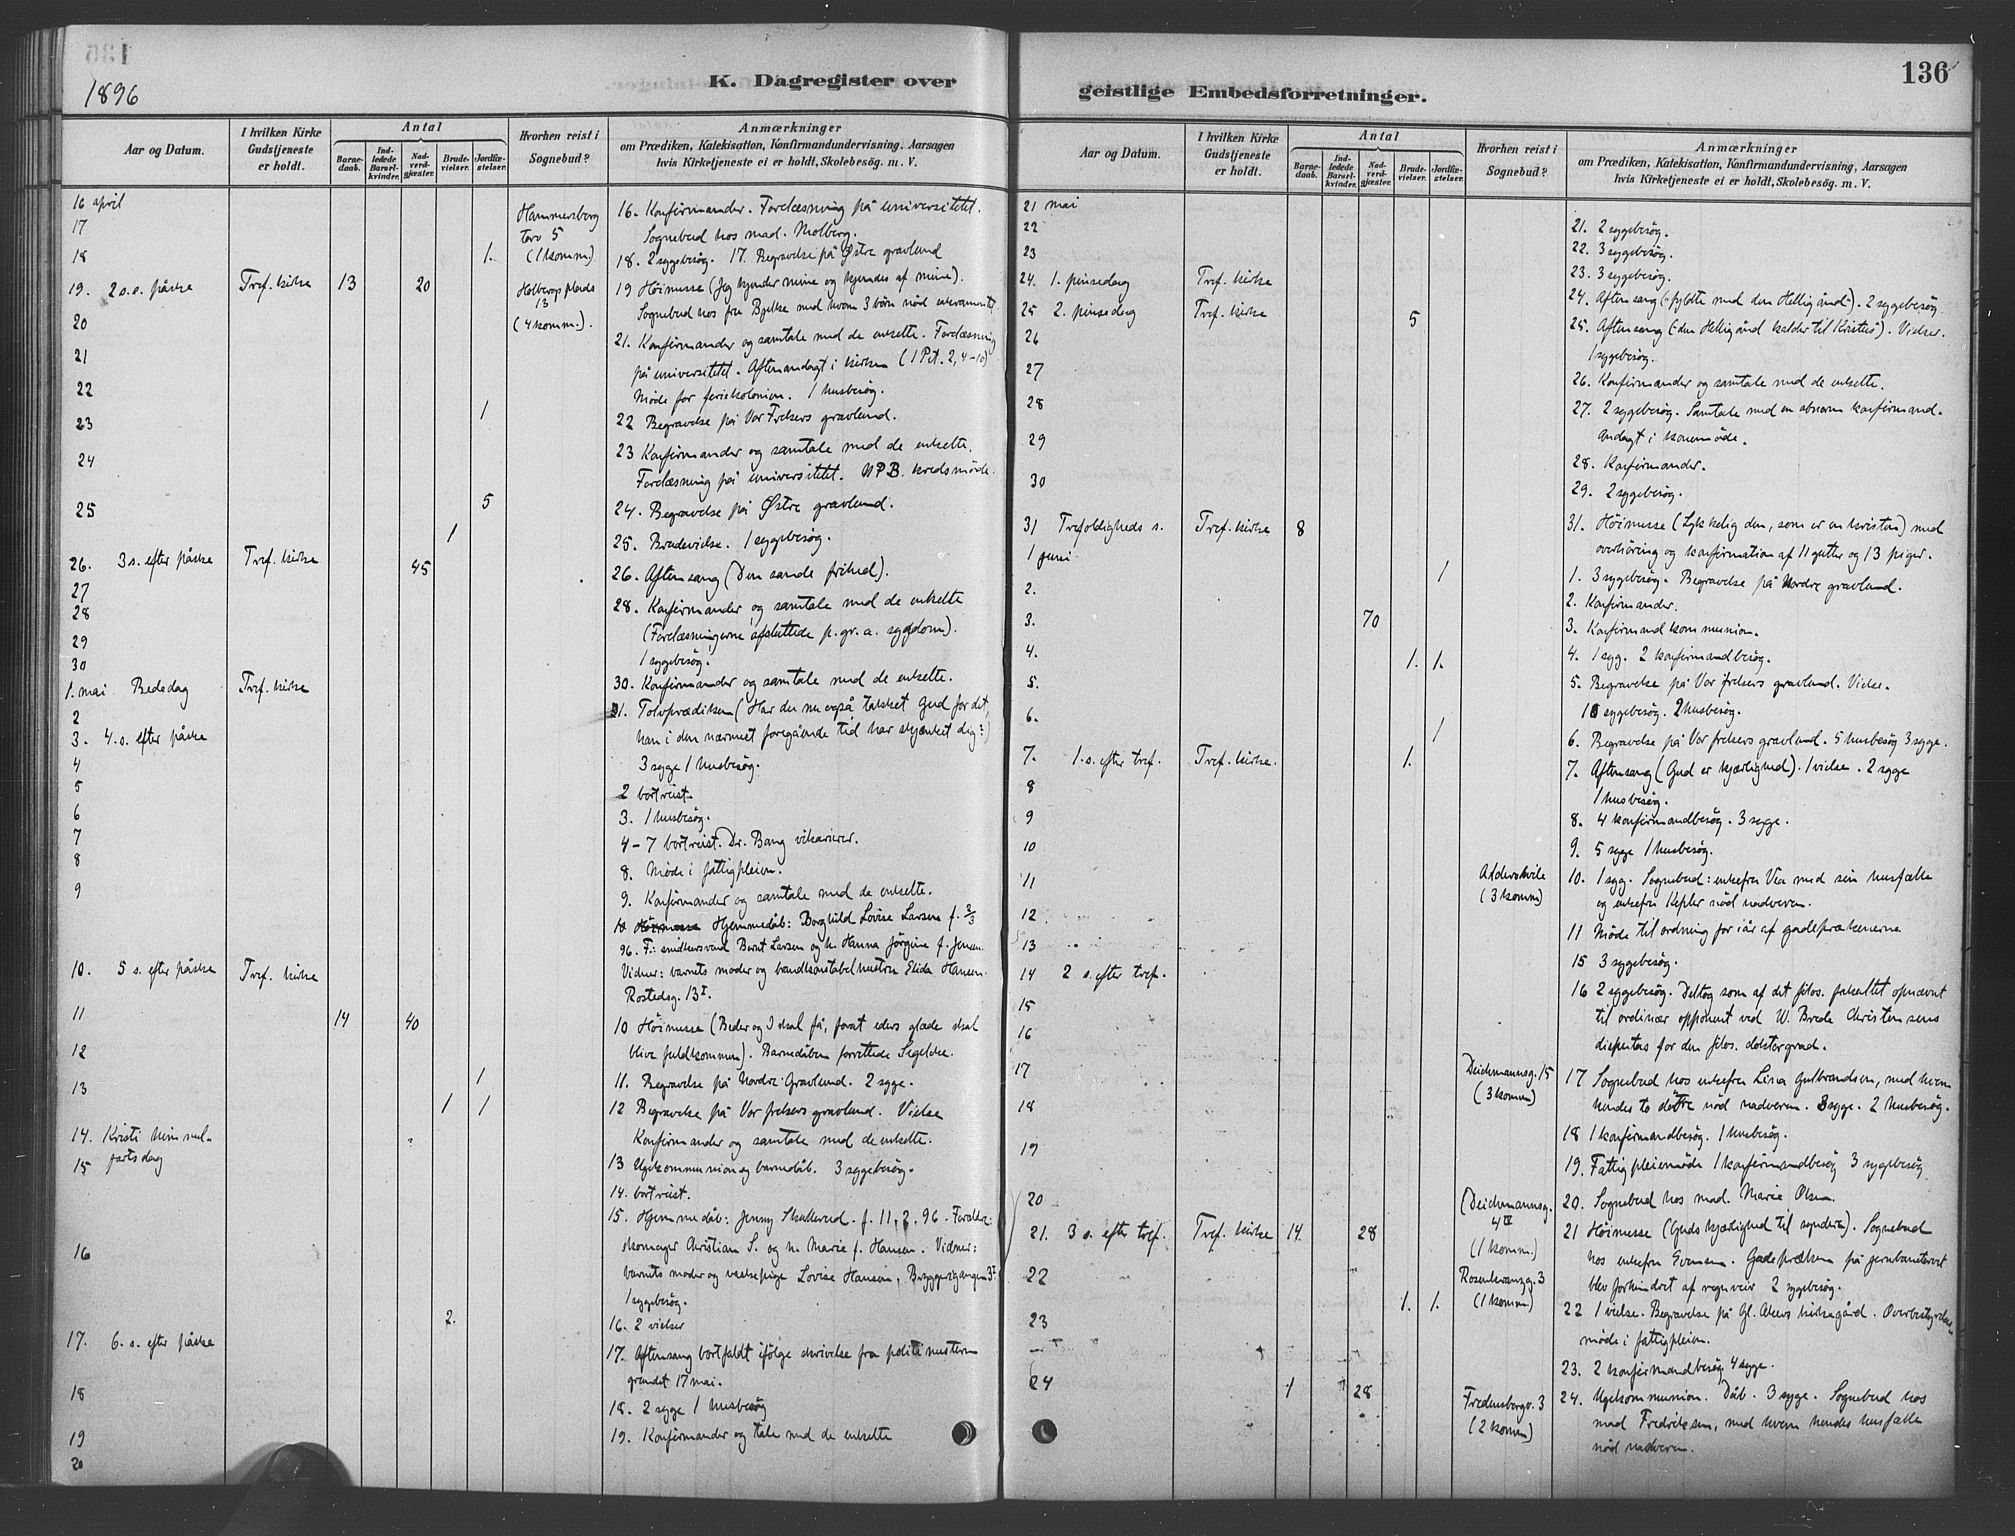 1896
K. Dagregister over
Aar og Datum.
I hvilken Kirke Gudstjeneste er holdt.
Antal
Barnedaab.
Indledede Barselkvinder.
Nadverdgjæster.
Brudevielser.
Jordfæstelser.
Hvorhen reist i Sognebud?
Anmærkninger
om Prædiken, Katekisation, Konfirmandundervisning, Aarsagen
hvis Kirketjeneste ei er holdt, Skolebesøg. m. V.
16 april
Hammersborg
16. Konfirmander. Forelæsning på universitetet.
17
torv 5
Sognebud hos mad. Molberg.
18
1.
(1 komm)
18. 2 sygebesøg. 17. Begravelse på Østre gravlund
19. 2 s. e. påske
Tref. kirke
13
20
Holbergs plads
13
19 Høimesse (Jeg kjender mine og kjendes af mine).
Sognebud hos fru Bjelke med hvem 3 børn nød
20
(4 komm.).
21. Konfirmander og samtale med de enkelte. Forelæsning
21
på universitetet. Aftenandagt i kirken (1 Pet. 2, 4-10)
22
Møde for feriekolonien. 1 husbesøg.
23
1
22 Begravelse på Vor Frelsers gravlund.
23 Konfirmander og samtale med de enkelte.
24
Forelæsning på universitetet. kredsmøde.
25
5
24. Begravelse på Østre gravlund.
1
25. Brudevielse. 1 sygebesøg.
26. 3 s. efter påske
Tref. kirke
45
26. Aftensang (Den sande frihed).
27
28. Konfirmander og samtale med de enkelte
28
(Forelæsningerne afsluttede p. gr. a. sygdom).
29
1 sygebesøg.
30
30. Konfirmander og samtale med de enkelte.
1. mai Bededag
Tref. kirke
1. Tolvprædiken (Har du nu også takket Gud for det,
2
han i den nærmest foregående tid har skjænket dig?)
3. 4. s. efter påske
3 syge 1 husbesøg.
4
2 bortreist.
5
3. 1 husbesøg.
6
4-7 bortreist. Dr. Bang vikarierer.
7
8. Møde i fattigpleien.
8
9. Konfirmander og samtale med de enkelte.
9
10 Høimesse Hjemmedåb: Borghild Lovise Larsen f. 2/3
96. F: snedkersvend Bernt Larsen og h. Hanna Jørgine f. Jensen.
Vidner: barnets moder og Elida Hansen.
Rostedsg. 13 I.
10. 5 s. efter påske
Tref. kirke
11
14
40
10 Høimesse (Beder og I skal få, forat eders glæde skal
blive fuldkommen). Barnedåben forrettede Segelcke.
12
1
11. Begravelse på Nordre Gravlund. 2 syge.
13
1
1
12 Begravelse på Vor frelsers gravlund. Vielse
Konfirmander og samtale med de enkelte.
14. Kristi himmelfartsdag
13 Ugekommunion og barnedåb. 3 sygebesøg.
15
14. bortreist.
15. Hjemmedåb: Jenny f. 11, 2, 96. Forældre:
skomager Christian S. og h. Marie f. Hansen. Vidner:
16
barnets moder og Lovise Hansen, Bryggerigangen 3 I
1 sygebesøg.
2.
16. 2 vielser
17. 6. s. efter påske
17. Aftensang bortfaldt ifølge skrivelse fra politimesteren
grundet 17 mai.
18
18. 2 syge 1 husbesøg
19
19. Konfirmander og tale med de enkelte
20
136
geistlige Embedsforretninger.
Aar og Datum.
I hvilken Kirke Gudstjeneste er holdt.
Antal
Barnedaab.
Indledede Barselkvinder.
Nadverdgjæster.
Brudevielser.
Jordfæstelser.
Hvorhen reist i Sognebud?
Anmærkninger
om Prædiken, Katekisation, Konfirmandundervisning, Aarsagen
hvis Kirketjeneste ei er holdt, Skolebesøg. m. V.
21 mai
21. 2 sygebesøg.
22
22. 3 sygebesøg.
23
23. 3 sygebesøg.
24. 1. pinsedag
Tref. kirke
24. Aftensang (fyldte med den Hellig ånd). 2 sygebesøg.
25 2. pinsedag
Tref. kirke
5
25. Aftensang (den Hellig ånd kalder til Kristus). Vielser.
26
1 sygebesøg.
27
26. Konfirmander og samtale med de enkelte.
28
27. 2 sygebesøg. Samtale med en abnorm konfirmand.
29
Andagt i konemøde.
28. Konfirmander.
30
29. 2 sygebesøg.
31 Trefoldigheds s.
Tref. kirke
8
31. Høimesse (Lykkelig den, som er en kristen) med
1 juni
overhøring og konfirmation af 11 gutter og 13 piger.
1
1. 3 sygebesøg. Begravelse på Nordre gravlund.
2.
2. Konfirmander.
3.
70
3. Konfirmandkommunion.
4.
1.
1.
4. 1 syg. 2 konfirmandbesøg.
5.
5. Begravelse på Vor frelsers gravlund. Vielse.
sygebesøg. 2 husbesøg.
6.
1
6. Begravelse på Vor frelsers gravlund. 5 husbesøg 3 syge.
7. 1. s. efter tref.
Tref. kirke.
1.
7. Aftensang (Gud er kjærlighed). 1 vielse. 2 syge
1 husbesøg.
8
8. 4 konfirmandbesøg. 3 syge.
9
9. 5 syge 1 husbesøg.
10
11
(3 komm)
10. 1 syg. Sognebud: enkefru Vea med sin husfælle
og enkefru Kepler nød nadveren.
12
11 Møde til ordning for iår af gadeprækenerne
13
15 3 sygebesøg.
14 2 s. efter tref.
16 2 sygebesøg. Deltog som af det filos. fakultet opnævnt
15
til ordinær opponent ved W. Brede Christensens
16
disputas for den filos. doktorgrad.
17
Deichmannsg. 15
(3 komm)
17 Sognebud hos enkefru Lina Gulbrandsen, med hvem
hendes to døtre nød nadveren. 3 syge. 2 husbesøg.
18
18 1 konfirmandbesøg. 1 husbesøg.
19
19. Fattigpleiemøde 1 konfirmandbesøg 3 sygebesøg
20
(Deichmannsg.
4 IV
(1 komm.)
20. Sognebud hos mad. Marie Olsen.
21. 3 s. efter tref.
Tref. kirke
14
28
21 Høimesse (Guds kjærlighed til syndere). Sognebud
hos enkefru Evensen. Gadepræken på jernbanetorvet
22
Rosenkranzg. 3
(1 komm)
blev forhindret af regnveir 2 sygebesøg.
1.
1.
22 1 vielse. Begravelse på Gl. Akers kirkegård. Overbestyrelsesmøde i fattigpleien.
23
23. 2 konfirmandbesøg 4 syge.
24
1
28
Fredensborgv. 3
(2 komm)
24. Ugekommunion. Dåb. 3 syge. Sognebud hos
mad Fredriksen, med hvem hendes husfælle
nød nadveren.